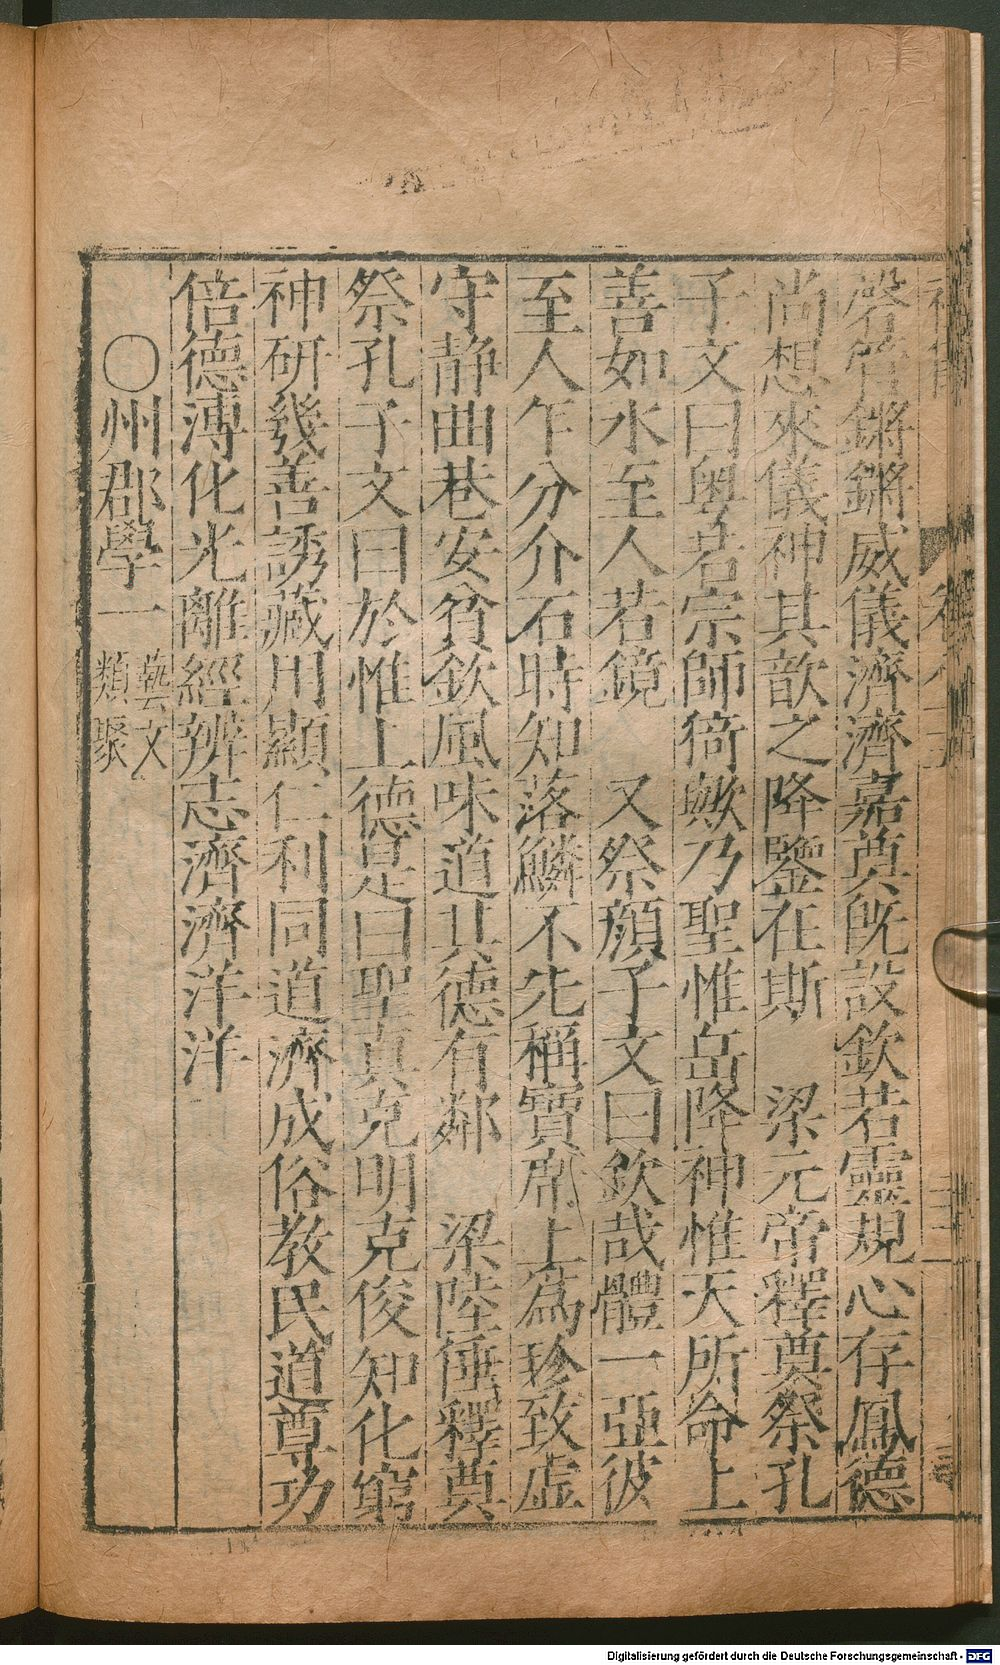 磬管鏘鏘威儀濟濟嘉奠旣設欽若靈規心存鳳德
尚想來儀神其歆之降鑒在斯　梁元帝釋奠祭孔
子文曰粵若宗師猗歟乃聖惟岳降神惟天所命上
善如水至人若鏡　又祭顏子文曰欽哉體一亞彼
至人乍分介石時知落鱗不先稱寶席上為珍致虛
守靜曲巷安貧欽風味道其德有鄰　梁陸倕釋奠
祭孔子文曰於惟上德是曰聖真克明克俊知化窮
神研幾善誘藏用顯仁利同道濟成俗教民道尊功
倍德溥化光離經辨志濟濟洋洋
○州郡學一藝文類聚
Digitalisierung gefördert durch die Deutsche Forschungsgemeinschaft - DFG